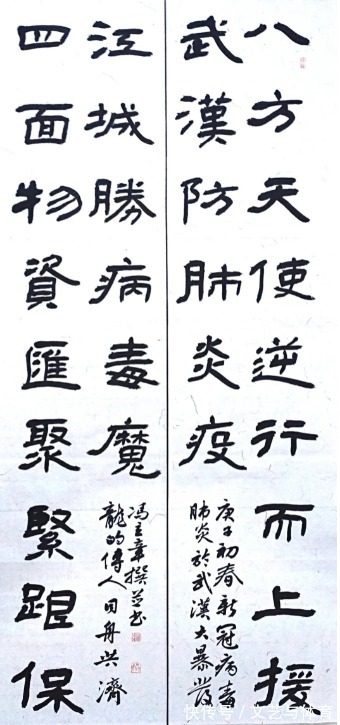 八方天使逆行而上援
武漢防肺炎疫
庚子初春新冠病毒
肺炎於武漢大暴發
四面物資匯聚緊跟保
江城勝病毒魔
龍的傳人同舟共濟
馮立章撰並书
快传号/文艺与体育